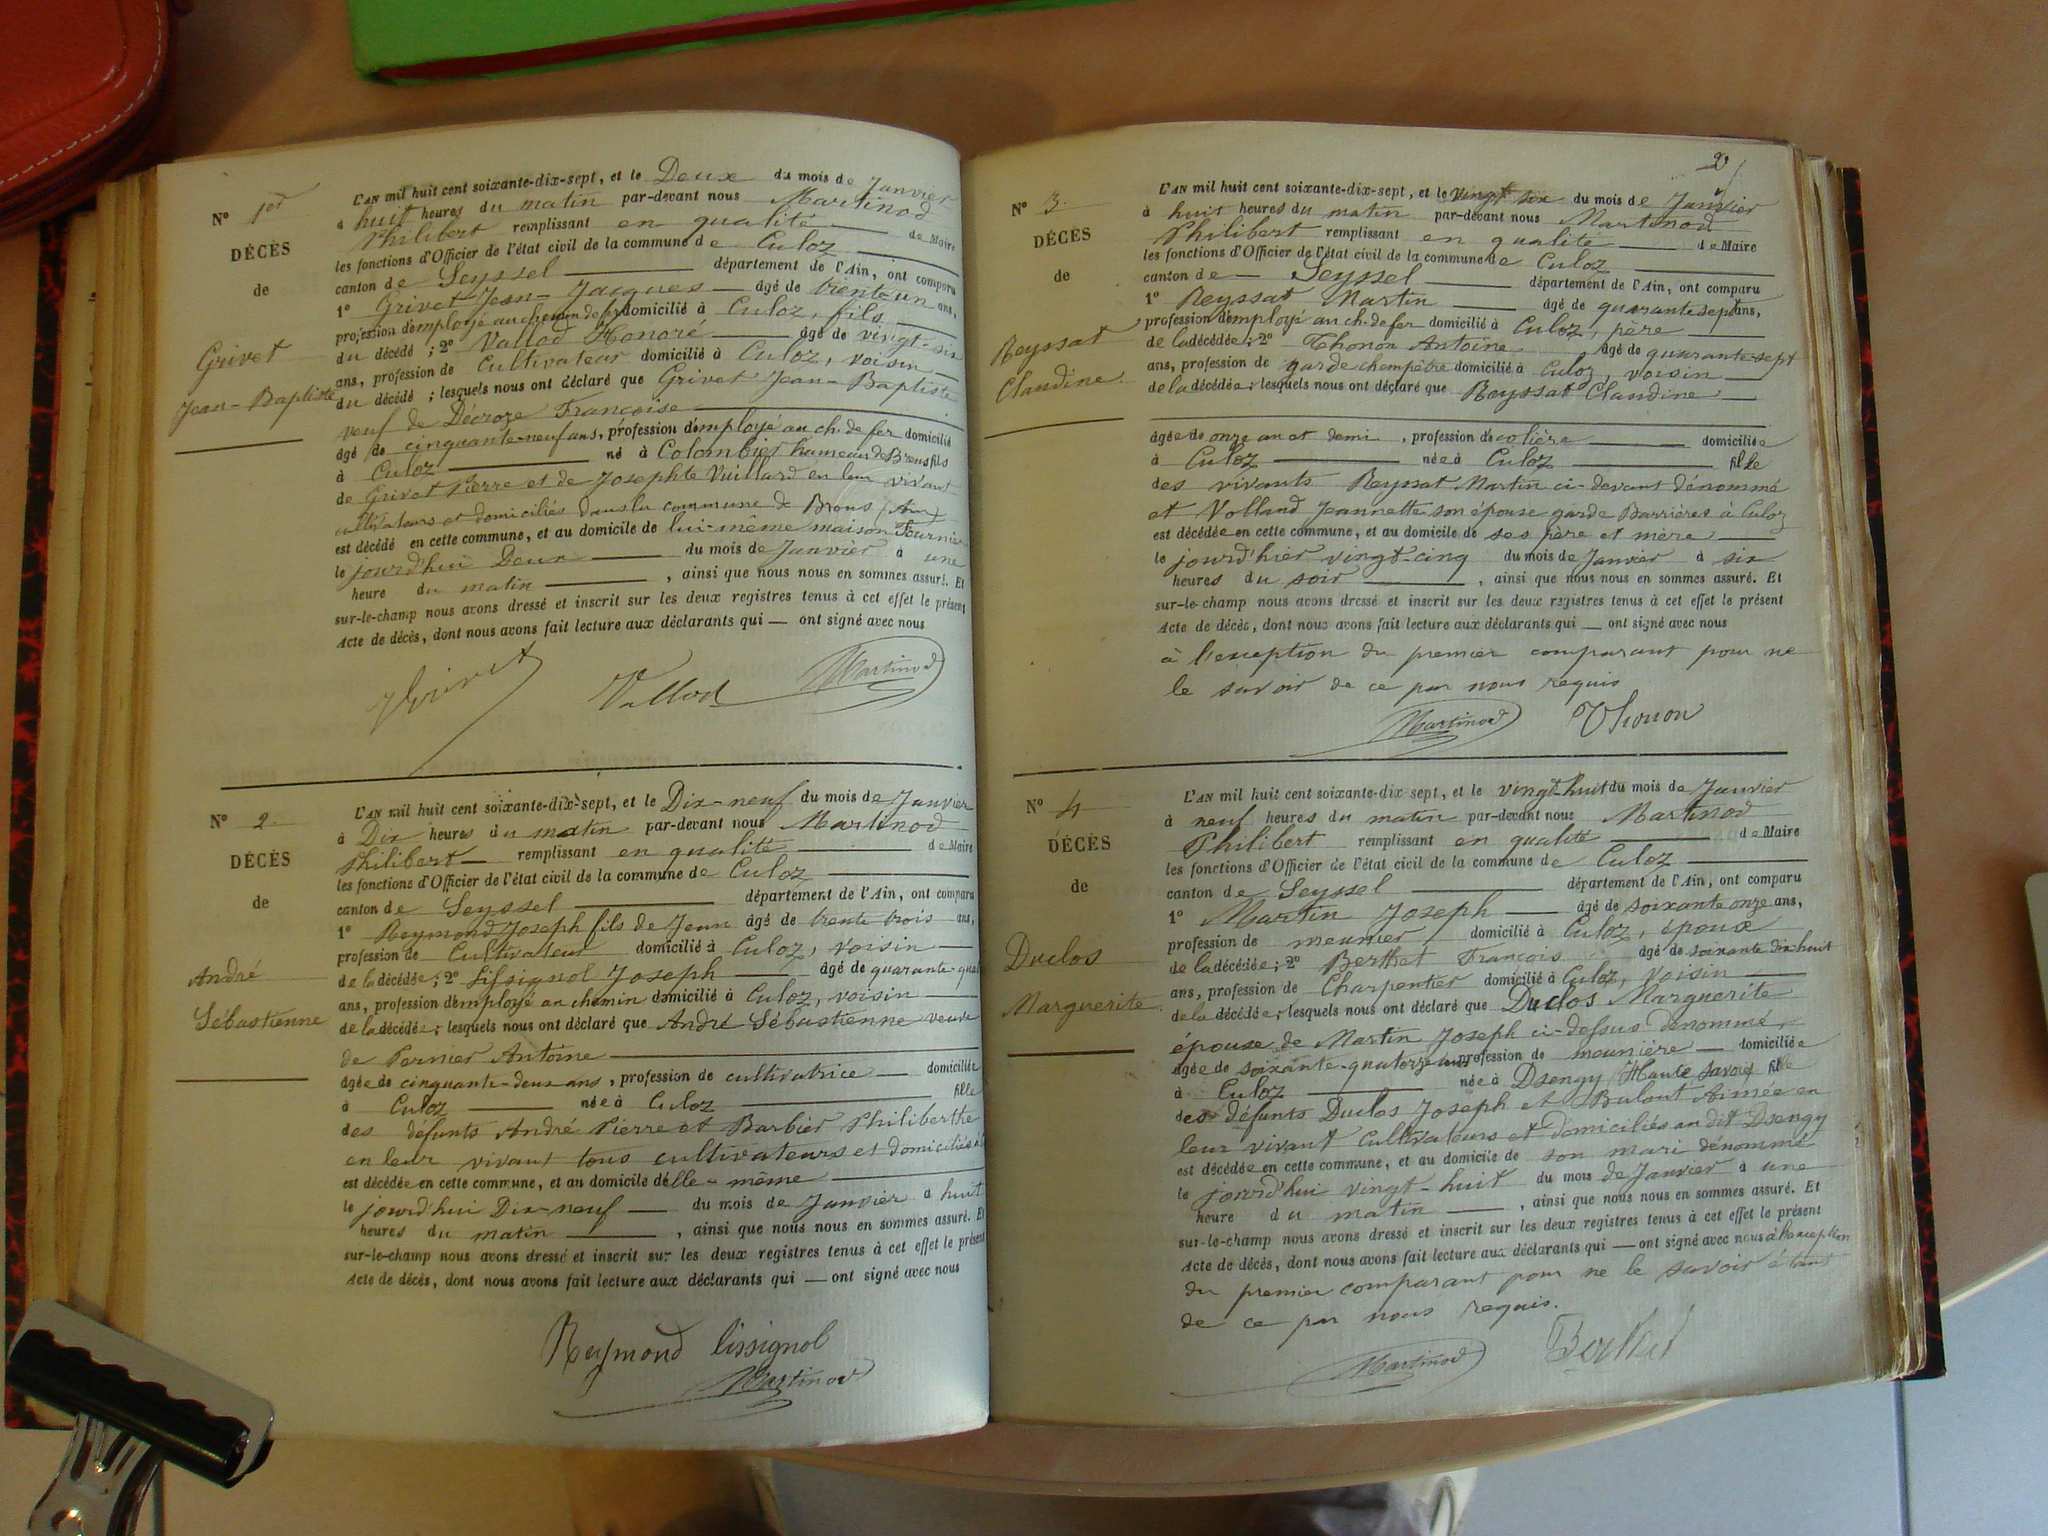 N° 1er
DÉCÈS
de
Grivet
Jean-Baptiste
L'AN mil huit cent soixante-dix-sept, et le Deux du mois de Janvier
à huit heures du matin par-devant nous Martinod
Philibert remplissant en qualité de Maire
les fonctions d'Officier de l'état civil de la commune de Culoz
canton de Seyssel département de l'Ain, ont comparu
1° Grivet Jean-Jacques âgé de trente-un ans,
profession d'employé au chemin de fer domicilié à Culoz, fils
du décédé; 2° Vallod Honoré âgé de vingt-six
ans, profession de Cultivateur domicilié à Culoz, voisin
du décédé; lesquels nous ont déclaré que Grivet Jean-Baptiste
veuf de Décroze Françoise
âgé de cinquante-neuf ans, profession d'employé au ch. de fer domicilié
à Culoz né à Colombier hameau de Brens fils
de Grivet Pierre et de Josephte Vuillard en leur vivant
cultivateurs et domiciliés dans la commune de Brens (Ain)
est décédé en cette commune, et au domicile de lui-même maison Fournier
le jourd'hui Deux du mois de Janvier à une
heure du matin, ainsi que nous nous en sommes assuré. Et
sur-le-champ nous avons dressé et inscrit sur les deux registres tenus à cet effet le présent
Acte de décès, dont nous avons fait lecture aux déclarants qui — ont signé avec nous
Grivet Vallod Martinod
N° 2.
DÉCÈS
de
André
Sébastienne
L'AN mil huit cent soixante-dix-sept, et le Dix-neuf du mois de Janvier
à Dix heures du matin par-devant nous Martinod
Philibert remplissant en qualité de Maire
les fonctions d'Officier de l'état civil de la commune de Culoz
canton de Seyssel département de l'Ain, ont comparu
1° Reymond Joseph fils de Jean âgé de trente trois ans,
profession de Cultivateur domicilié à Culoz, voisin
de la décédée; 2° Lissignol Joseph âgé de quarante-
ans, profession d'employé au chemin domicilié à Culoz, voisin
de la décédée; lesquels nous ont déclaré que André Sébastienne veuve
de Pernier Antoine
âgée de cinquante-deux ans, profession de cultivatrice domiciliée
à Culoz née à Culoz fille
des défunts André Pierre et Barbier Philiberthe
en leur vivant tous cultivateurs et domiciliés à
est décédée en cette commune, et au domicile d'elle-même
le jourd'hui Dix-neuf du mois de Janvier à huit
heures du matin, ainsi que nous nous en sommes assuré. Et
sur-le-champ nous avons dressé et inscrit sur les deux registres tenus à cet effet le présent
Acte de décès, dont nous avons fait lecture aux déclarants qui — ont signé avec nous
Reymond Lissignol
Martinod
2
N° 3.
DÉCÈS
de
Reyssat
Claudine
L'AN mil huit cent soixante-dix-sept, et le vingt six du mois de Janvier
à huit heures du matin par-devant nous Martinod
Philibert remplissant en qualité de Maire
les fonctions d'Officier de l'état civil de la commune de Culoz
canton de Seyssel département de l'Ain, ont comparu
1° Reyssat Martin âgé de quarante sept ans,
profession d'employé au ch. de fer domicilié à Culoz, père
de la décédée; 2° Thonon Antoine âgé de quarante-sept
ans, profession de garde chempêtre domicilié à Culoz, voisin
de la décédée; lesquels nous ont déclaré que Reyssat Claudine
âgée de onze an et demi, profession d'écolière domiciliée
à Culoz née à Culoz fille
des vivants Reyssat Martin ci-devant dénommé
et Volland Jeannette son épouse garde Barrières à Culoz
est décédée en cette commune, et au domicile de ses père et mère
le jourd'hier vingt-cinq du mois de Janvier à six
heures du soir, ainsi que nous nous en sommes assuré. Et
sur-le-champ nous avons dressé et inscrit sur les deux registres tenus à cet effet le présent
Acte de décès, dont nous avons fait lecture aux déclarants qui — ont signé avec nous
à l'exception du premier comparant pour ne
le savoir de ce par nous requis
Martinod Thonon
N° 4
DÉCÈS
de
Duclos
Marguerite
L'AN mil huit cent soixante-dix-sept, et le vingt-huit du mois de Janvier
à neuf heures du matin par-devant nous Martinod
Philibert remplissant en qualité de Maire
les fonctions d'Officier de l'état civil de la commune de Culoz
canton de Seyssel département de l'Ain, ont comparu
1° Martin Joseph âgé de soixante onze ans,
profession de meunier domicilié à Culoz, époux
de la décédée; 2° Berthet François âgé de soixante dix huit
ans, profession de Charpentier domicilié à Culoz, voisin
de la décédée; lesquels nous ont déclaré que Duclos Marguerite
épouse de Martin Joseph ci-dessus dénommé,
âgée de soixante-quatorze ans profession de meunière domiciliée
à Culoz née à Dsengy (Haute Savoie) fille
des défunts Duclos Joseph et Aimée en
leur vivant Cultivateurs et domiciliés au dit Dsengy
est décédée en cette commune, et au domicile de son mari dénommé
le jourd'hui vingt-huit du mois de Janvier à une
heure du matin, ainsi que nous nous en sommes assuré. Et
sur-le-champ nous avons dressé et inscrit sur les deux registres tenus à cet effet le présent
Acte de décès, dont nous avons fait lecture aux déclarants qui — ont signé avec nous à l'exception
du premier comparant pour ne le savoir étant
de ce par nous requis.
Martinod Berthet